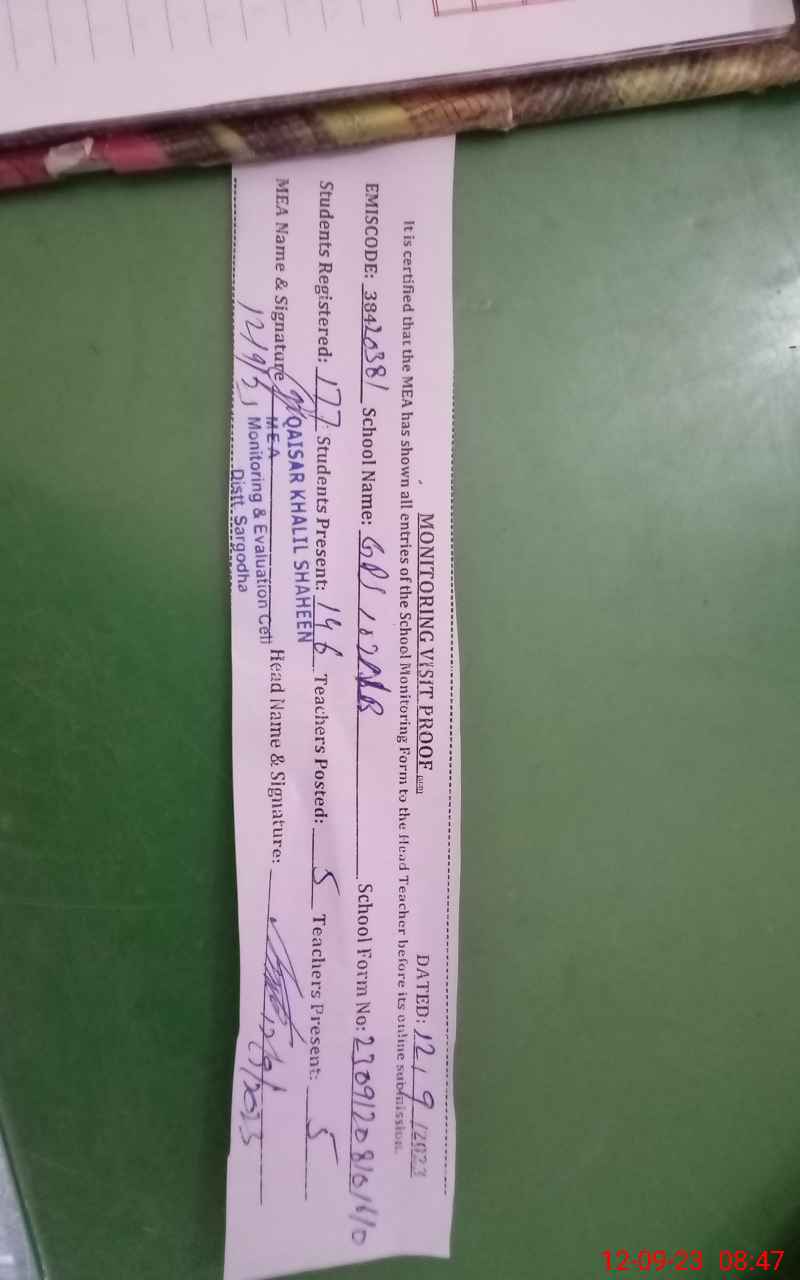 MONITORING VISIT PROOF DATED: 12/9/2023
It is certified that the MEA has shown all entries of the School Monitoring Form to the Head Teacher before its online submission.
EMISCODE: 38420381 School Name: GPS 107NB School Form No:
Students Registered: 177 Students Present: 146 Teachers Posted: 5 Teachers Present: 5
MEA Name & Signature Head Name & Signature: 12/9/2023
QAISAR KHALIL SHAHEEN
MEA
Monitoring & Evaluation Cell
Distt. Sargodha
12-09-23 08:47